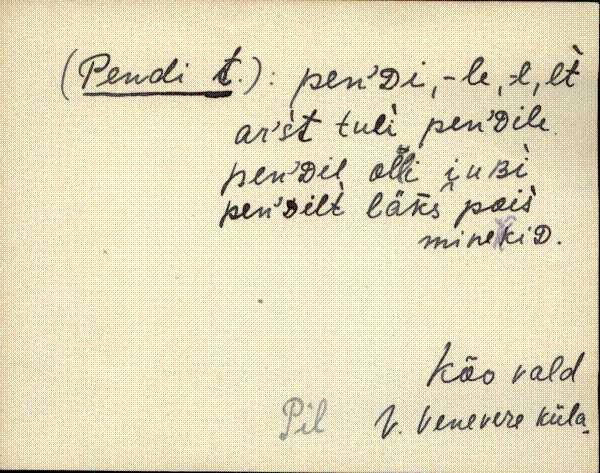 (Pendi t.): pen'Di, -le, -l, lt̀
ar'śt tuli pen'Dile.
pen'Dil olli iuʙi
pen'Dilt̀ läks pois
minekiD.
Kõo vald
Pil V. Venevere küla